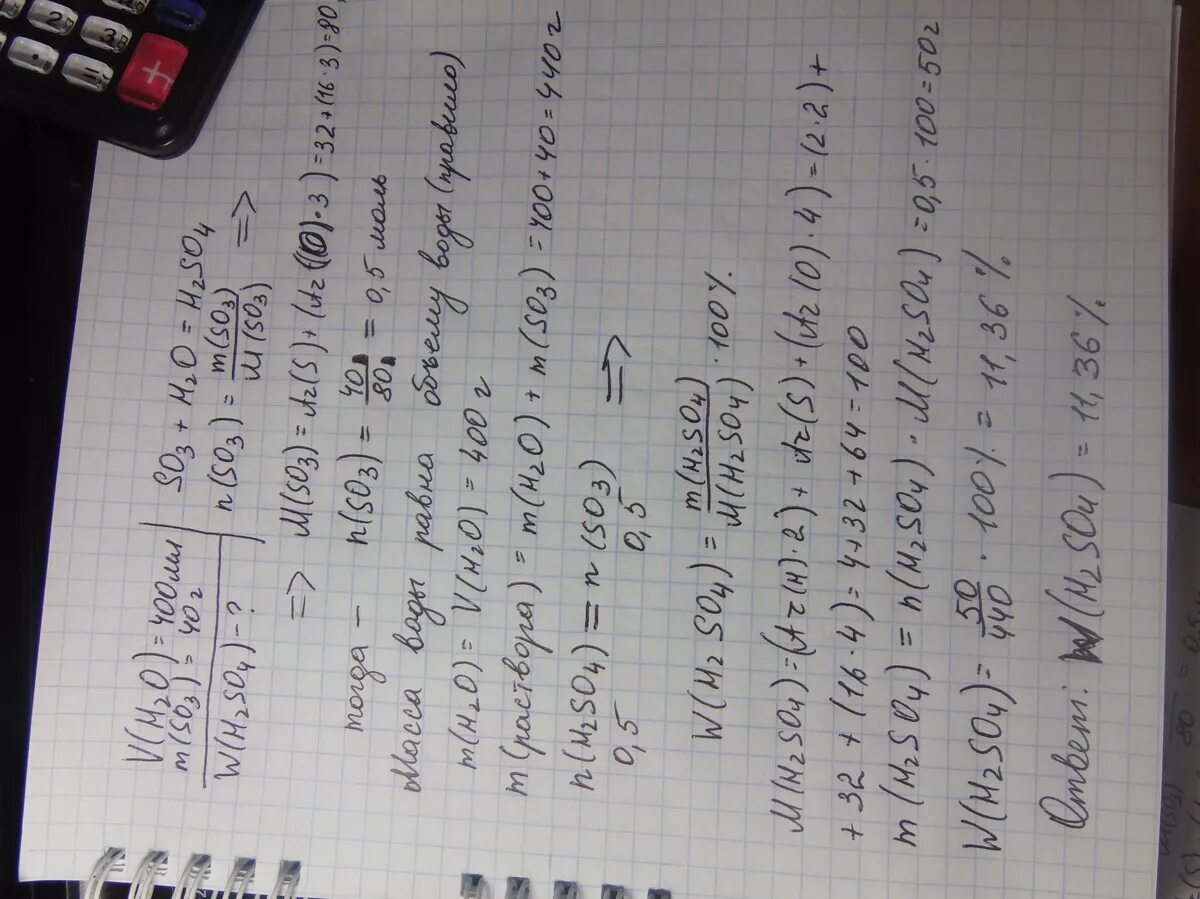 V(H₂O) = 400мл
m(SO₃) = 40г
W(H₂SO₄) - ?
SO₃ + H₂O = H₂SO₄
n(SO₃) = m(SO₃)/M(SO₃) =>
=> M(SO₃) = Ar(S) + (Ar(O)·3) = 32 + (16·3) = 80,
тогда – n(SO₃) = 40/80 = 0,5 моль
Масса воды равна объему воды (правило)
m(H₂O) = V(H₂O) = 400 г
m(раствора) = m(H₂O) + m(SO₃) = 400 + 40 = 440 г
n(H₂SO₄) = n(SO₃) =>
0,5 0,5
W(H₂SO₄) = m(H₂SO₄)/M(H₂SO₄) · 100%.
M(H₂SO₄) = (Ar(H)·2) + Ar(S) + (Ar(O)·4) = (2·2) +
+ 32 + (16·4) = 4 + 32 + 64 = 100
m(H₂SO₄) = n(H₂SO₄) · M(H₂SO₄) = 0,5 · 100 = 50г
W(H₂SO₄) = 50/440 · 100% = 11,36%
Ответ: W(H₂SO₄) = 11,36%.
2
3
=
+